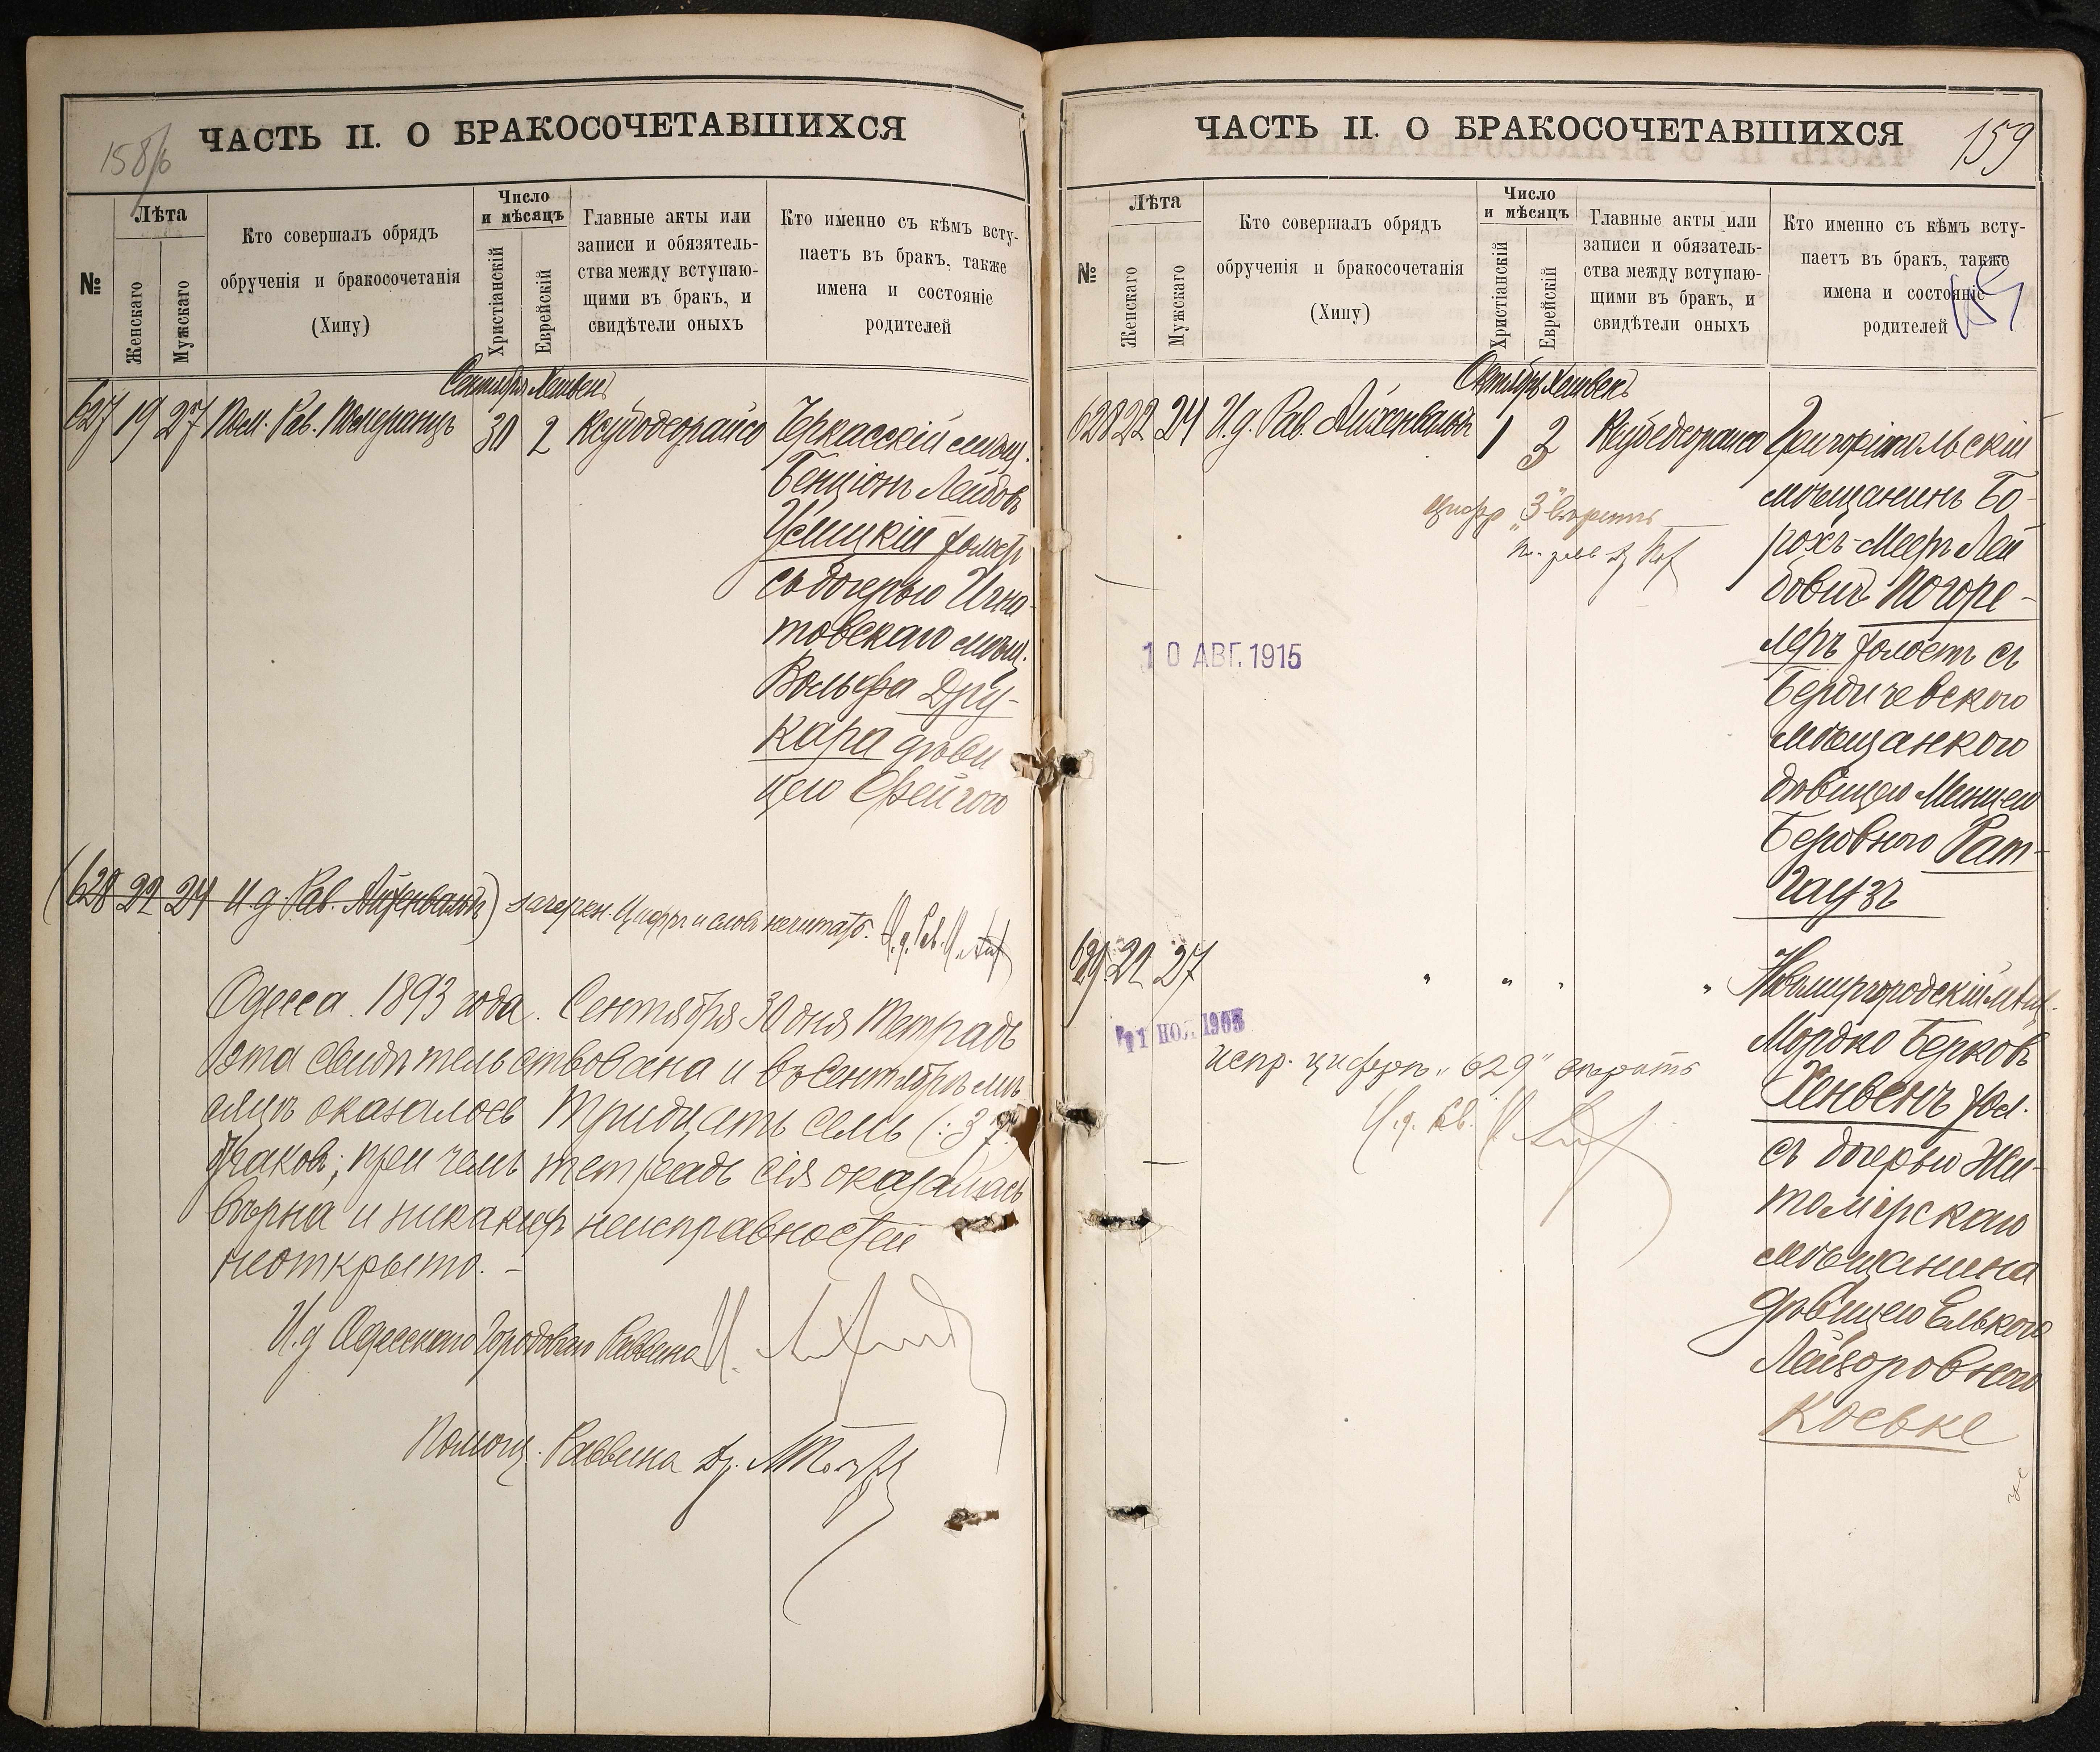 158/б
ЧАСТЬ II. О БРАКОСОЧЕТАВШИХСЯ
№
Лѣта
Женскаго
Мужскаго
Кто совершалъ обрядъ
обрученія и бракосочетанія
(Хипу)
Число
и мѣсяцъ
Христіанскій
Еврейскій
Главные акты или
записи и обязятель-
ства между вступаю-
щими въ бракъ, и
свидѣтели оныхъ
Кто именно съ кѣмъ всту-
паетъ въ бракъ, также
имена и состояніе
родителей
Сентября Хешвенъ
627 19 27 Пом. Рав. Померанцъ 30 2 Ксубодеорайсо Черкасскій мѣщ.
Бенціонъ Лейбовъ
Усмицкій холостъ
съ дочерью Игна-
товскаго мѣщ.
Вольфа Дру-
кара дѣви
цею Фейгою
(628 22 24 И.д. Рав. Айхенвальдъ) зачеркн. цифры и слова нечитать. И.д. Рав. И.
Одесса. 1893 года. Сентября 30 дня Тетрадь
эта свидѣтельствована и въ Сентябрѣ мѣ
сяцѣ оказалось Тридцать семь (:37:)
браковъ; при чемъ тетрадь сія оказалась
вѣрна и никакихъ неисправностей
неоткрыто. -
И.д. Одесскаго Городоваго Раввина И.
Помощ. Раввина Др.
ЧАСТЬ II. О БРАКОСОЧЕТАВШИХСЯ
159
№
Лѣта
Женскаго
Мужскаго
Кто совершалъ обрядъ
обрученія и бракосочетанія
(Хипу)
Число
и мѣсяцъ
Христіанскій
Еврейскій
Главные акты или
записи и обязатель-
ства между вступаю-
щими въ бракъ, и
свидѣтели оныхъ
Кто именно съ кѣмъ всту-
паетъ въ бракъ, также
имена и состояніе
родителей
Октябрь Хешвенъ
628 22 24 И.д. Рав. Айхенвальдъ 1 3 Ксубедеорайсо Григоріпольскій
мѣщанинъ Бо-
рохъ-Мееръ Лей
бовичъ Погоре-
леръ холостъ съ
Бердичевскою
мѣщанкою
дѣвицею Минцею
Беровною Рат-
гаузъ
цифр „3“ вѣрить
10 АВГ. 1915
629 22 27 " " " " Новомиргородскій мѣщ.
Мордко Берковъ
Хенвенъ хол.
съ дочерью Жи-
томірскаго
мѣщанина
дѣвицею Елькою
Лейзоровною
Коевке
11 НОЯ 1903
испр. цифрѣ „629“ вѣрить
И.д. Рав. И.